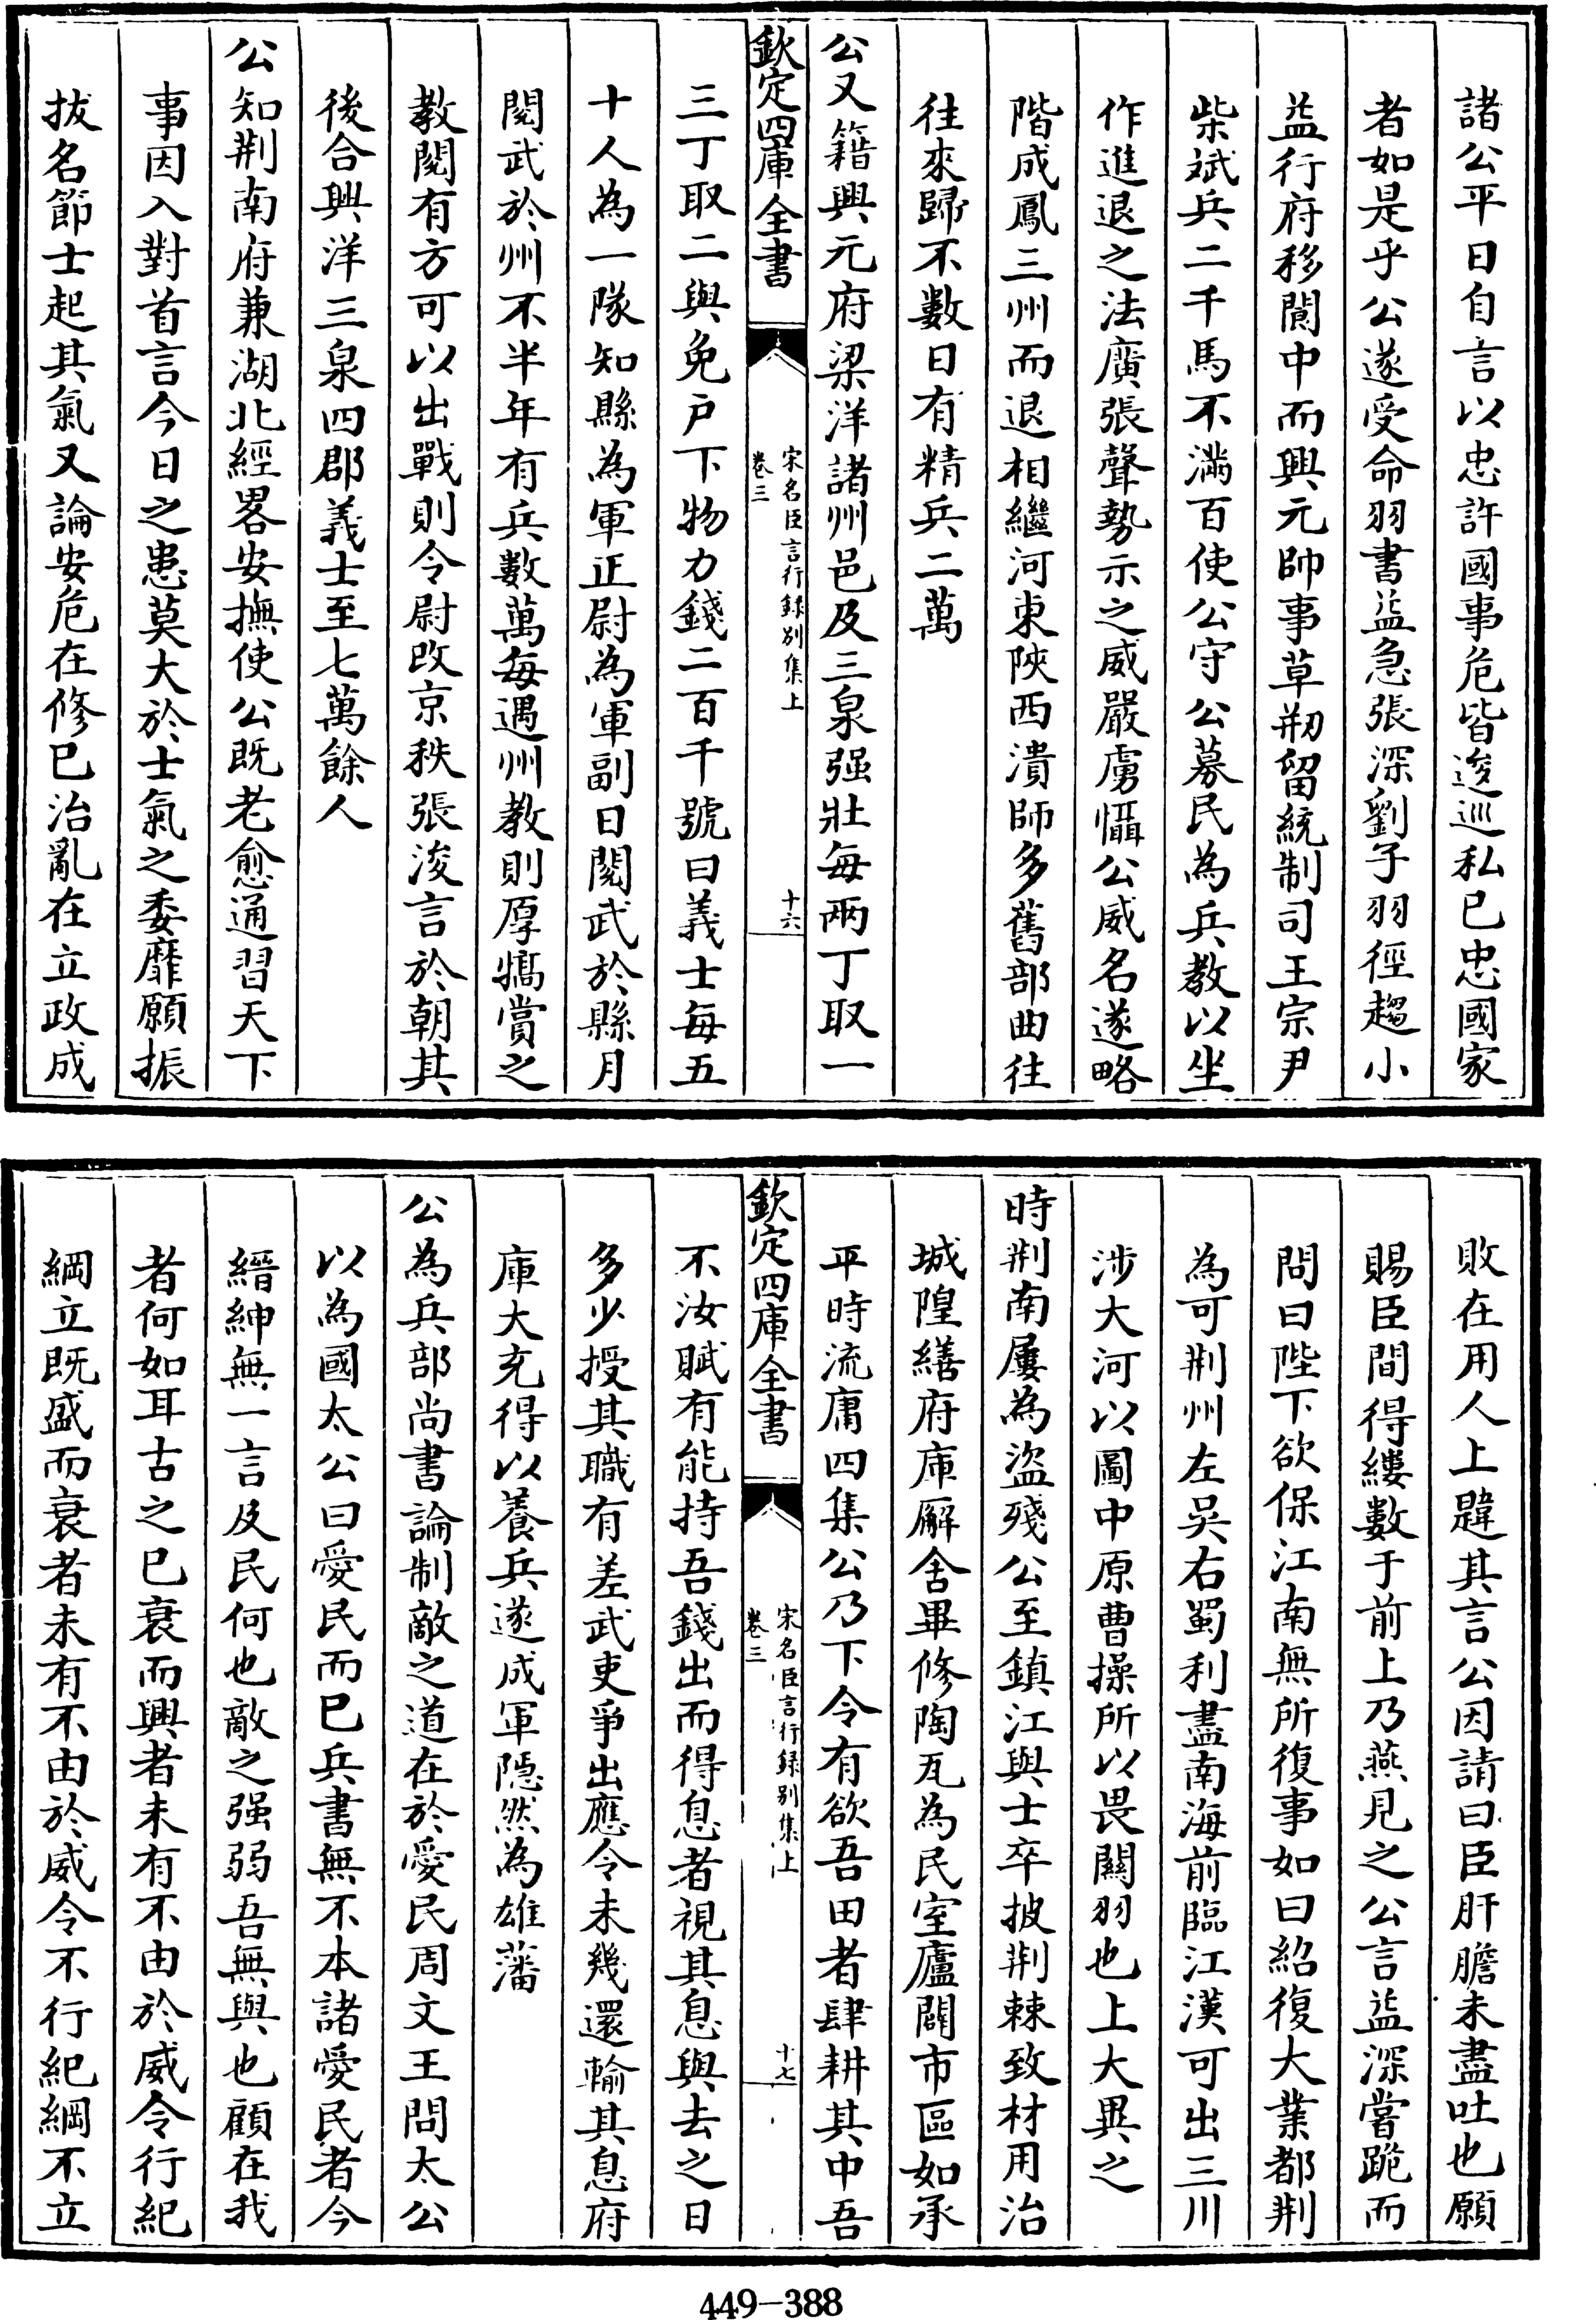 諸公平日自言以忠許國事危皆逡巡私已忠國家
者如是乎公遂受命羽書益急張深劉子羽徑趨小
益行府移閬中而興元帥事草剏留統制司王宗尹
柴斌兵二千馬不滿百使公守公募民為兵教以坐
作進退之法廣張聲勢示之威嚴虜懾公威名遂略
階成鳳三州而退相繼河東陜西潰師多舊部曲往
往來歸不數日有精兵二萬
公又籍興元府梁洋諸州邑及三泉强壯每兩丁取一
欽定四庫全書
宋名臣言行録别集上
卷三
十六
三丁取二與免户下物力錢二百千號曰義士每五
十人為一隊知縣為軍正尉為軍副日閱武於縣月
閱武於州不半年有兵數萬每遇州教則厚犒賞之
教閱有方可以出戰則令尉改京秩張浚言於朝其
後合興洋三泉四郡義士至七萬餘人
公知荆南府兼湖北經畧安撫使公既老愈通習天下
事因入對首言今日之患莫大於士氣之委靡願振
拔名節士起其氣又論安危在修已治亂在立政成
敗在用人上韙其言公因請曰臣肝膽未盡吐也願
賜臣間得縷數于前上乃燕見之公言益深嘗跪而
問曰陛下欲保江南無所復事如曰紹復大業都荆
為可荆州左吳右蜀利盡南海前臨江漢可出三川
涉大河以圖中原曹操所以畏關羽也上大異之
時荆南屢為盜殘公至鎮江與士卒披荆棘致材用治
城隍繕府庫廨舍畢修陶瓦為民室廬闢市區如承
平時流庸四集公乃下令有欲吾田者肆耕其中吾
欽定四庫全書
宋名臣言行録别集上
卷三
十七
不汝賦有能持吾錢出而得息者視其息與去之日
多少授其職有差武吏爭出應令未幾還輸其息府
庫大充得以養兵遂成軍隱然為雄藩
公為兵部尚書論制敵之道在於愛民周文王問太公
以為國太公曰愛民而已兵書無不本諸愛民者今
縉紳無一言及民何也敵之强弱吾無與也顧在我
者何如耳古之已衰而興者未有不由於威令行紀
綱立既盛而衰者未有不由於威令不行紀綱不立
449-388